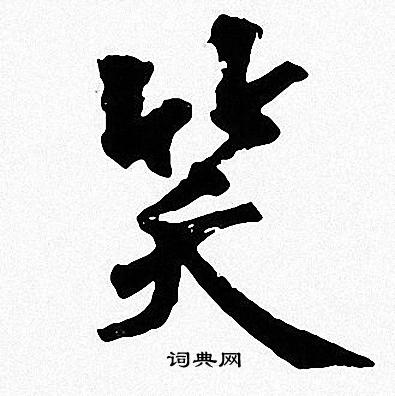 笑
词典网